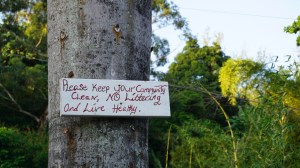 Please Keep your Community
Clean, NO Littering
and Live Healthy.